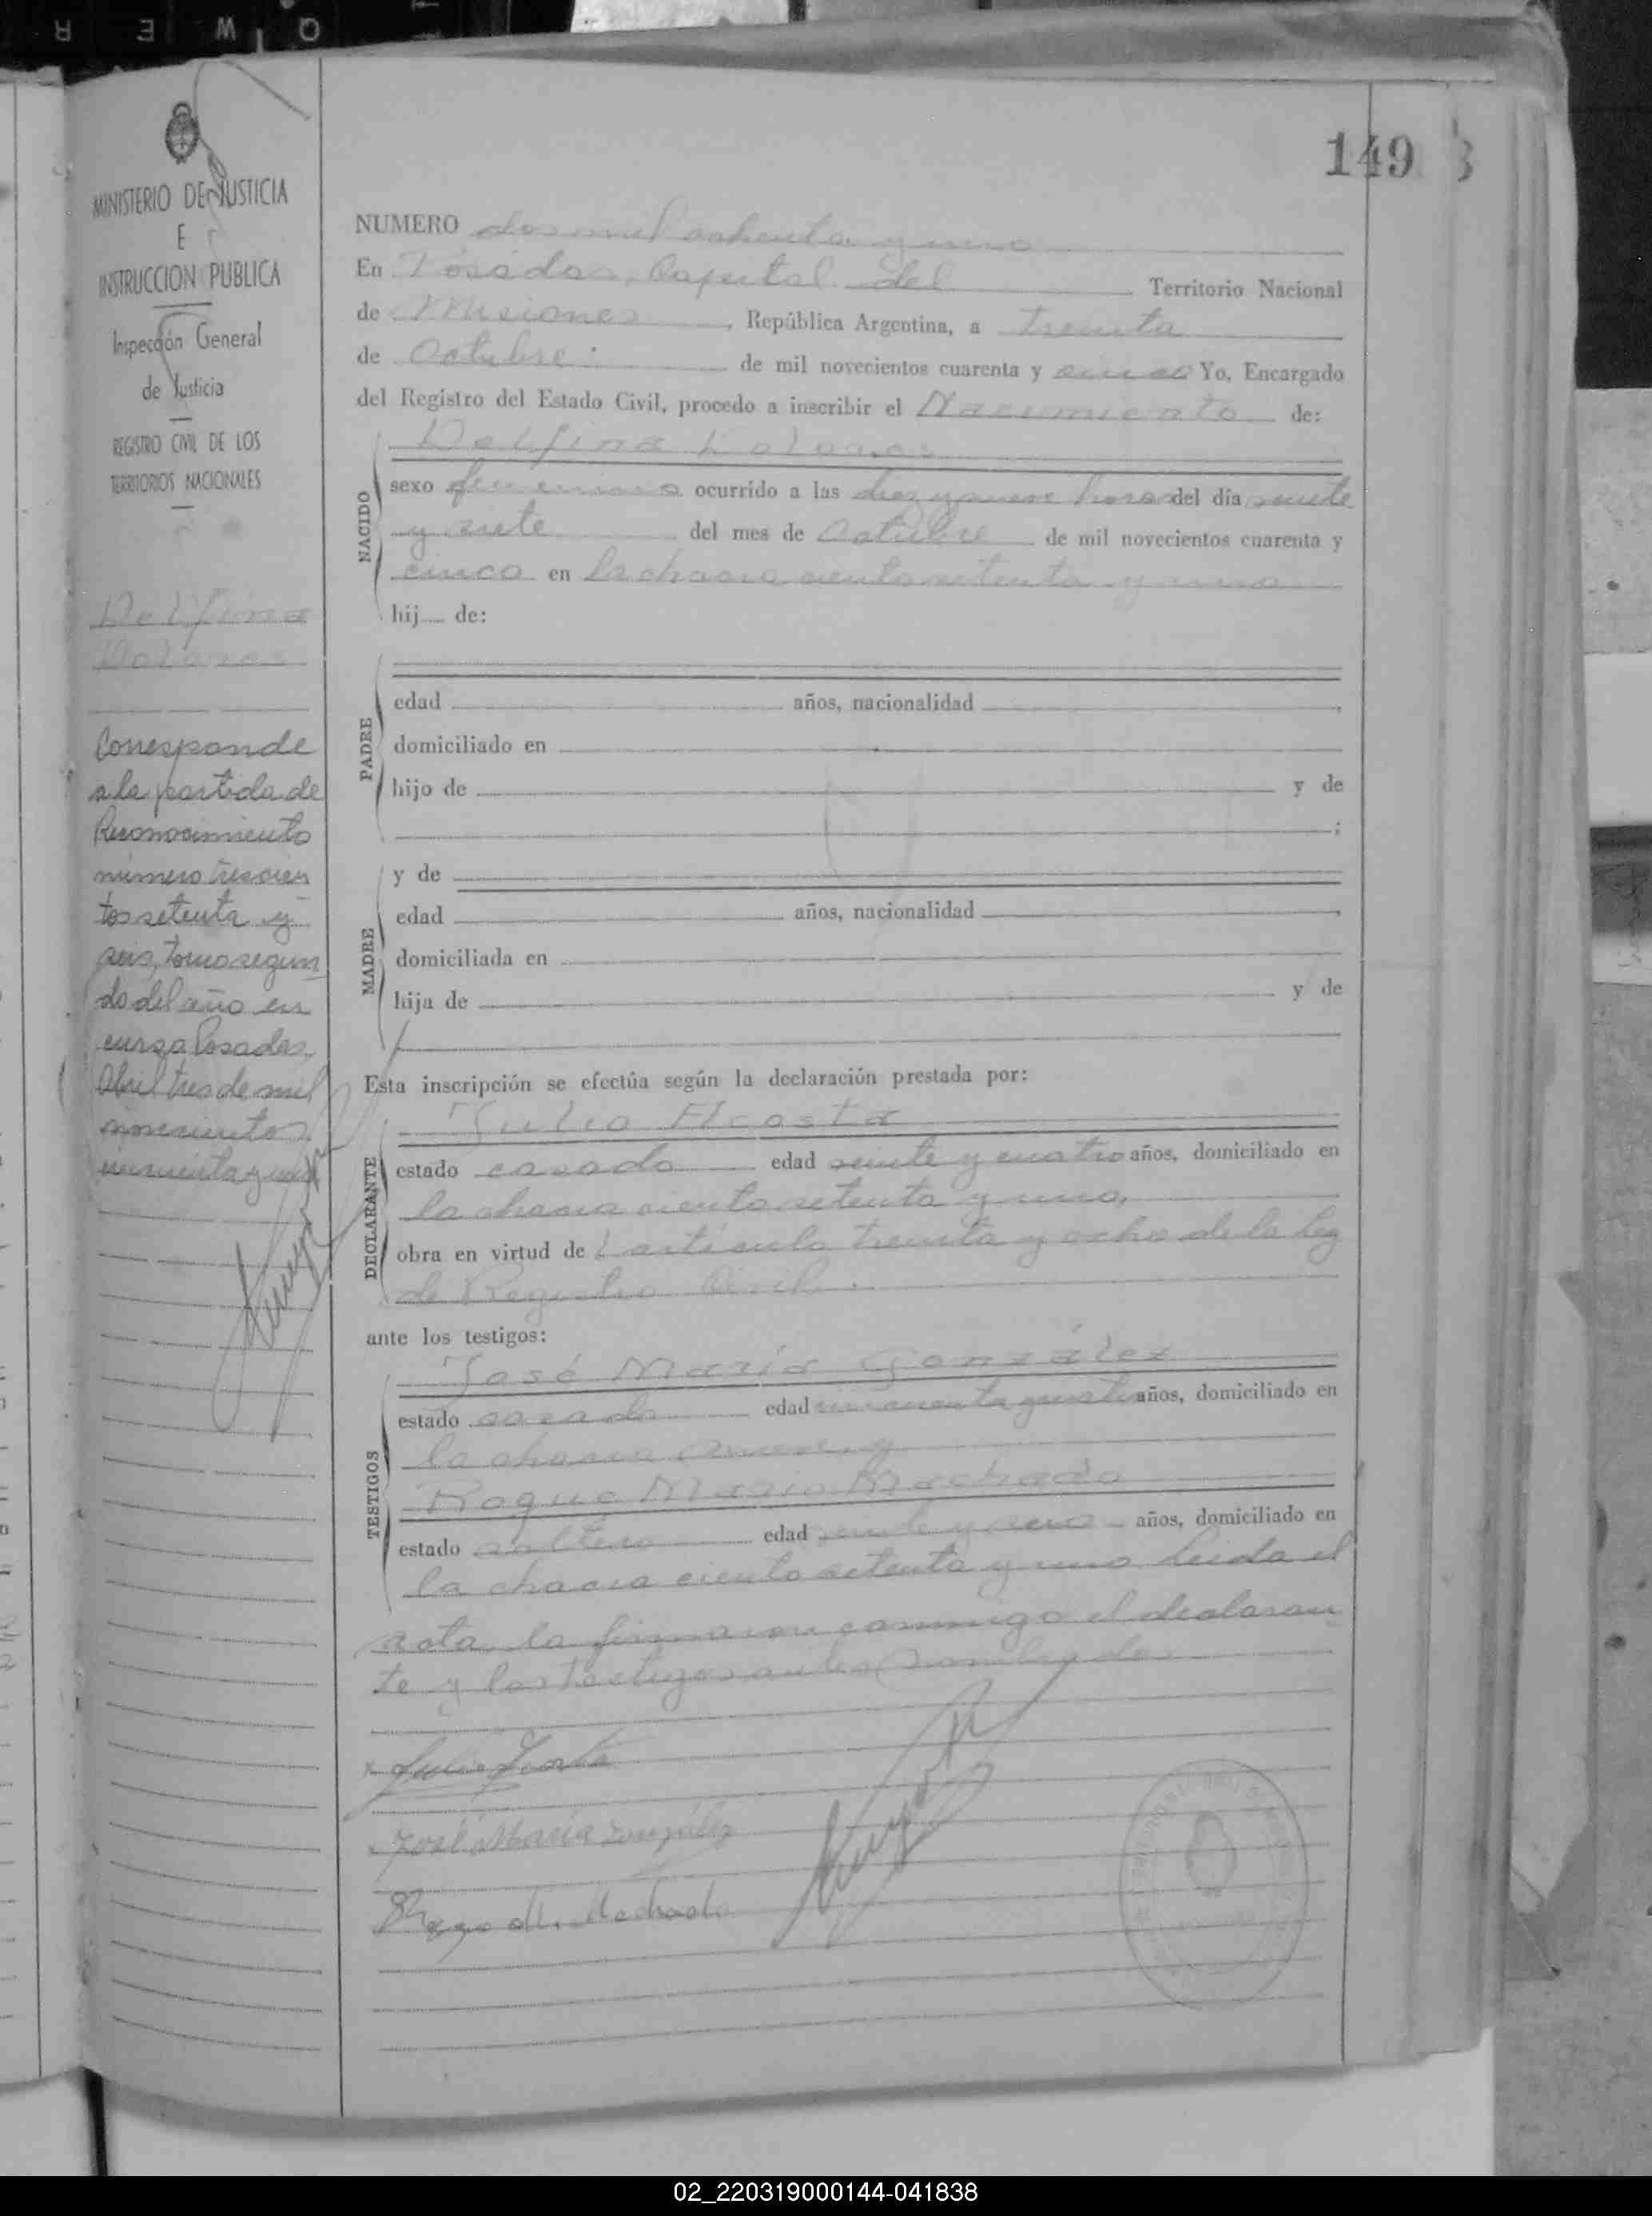 149
MINISTERIO DE JUSTICIA
E
INSTRUCCION PUBLICA
Inspección General
de Justicia
REGISTRO CIVIL DE LOS
TERRITORIOS NACIONALES
Delfina
Dolores
Corresponde
a la partida de
Reconocimiento
número trescien
tos setenta y
seis, tomo segun
do del año en
curso Posadas,
Abril tres de mil
novecientos
cincuenta y
NUMERO dos mil ochenta y uno
En Posadas, Capital del Territorio Nacional
de Misiones, República Argentina, a treinta
de Octubre de mil novecientos cuarenta y cinco Yo, Encargado
del Registro del Estado Civil, procedo a inscribir el Nacimiento de:
NACIDO
Delfina Dolores
sexo femenino ocurrido a las diez y nueve horas del día veinte
y siete del mes de Octubre de mil novecientos cuarenta y
cinco en la chacra ciento setenta y uno
hij de:
PADRE
edad años, nacionalidad ,
domiciliado en
hijo de y de
;
MADRE
y de
edad años, nacionalidad ,
domiciliada en
hija de y de
Esta inscripción se efectúa según la declaración prestada por:
DECLARANTE
Julio Acosta
estado casado edad veinte y cuatro años, domiciliado en
la chacra ciento setenta y uno,
obra en virtud de l artículo treinta y ocho de la Ley
de Registro Civil.
ante los testigos:
TESTIGOS
José María González
estado casado edad años, domiciliado en
la chacra y
Roque Mario Machado
estado soltero edad veinte y años, domiciliado en
la chacra ciento setenta y uno Leida el
acta, la firmaron conmigo el declaran
te y los testigos antes nombrados.
Julio Acosta
José María González
Roque M. Machado
02_220319000144-041838